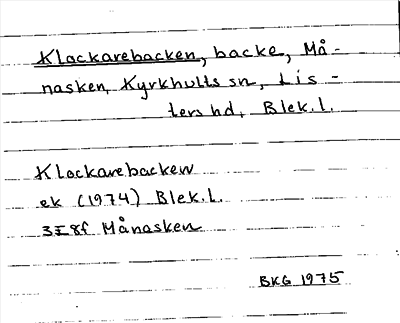 Klockarebacken, backe, Må-
nasken, Kyrkhults sn, Lis-
ters hd, Blek.l.
Klockarebacken
ek (1974) Blek.l.
3E8f Månasken
BKG 1975